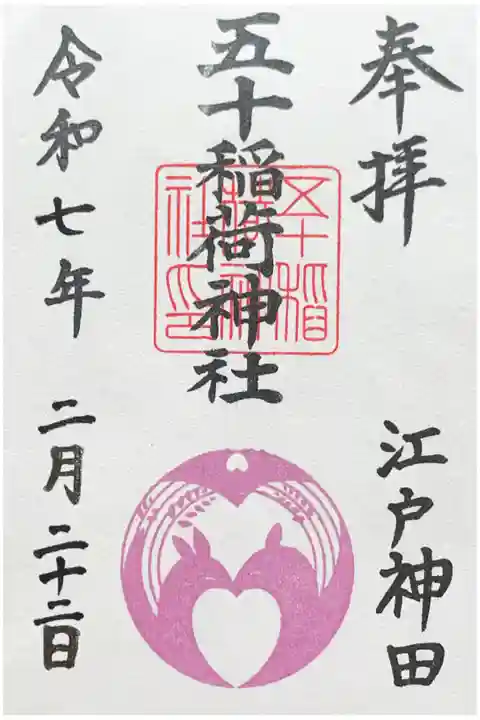 奉拝
江戸神田
五十稲荷神社
五十稲荷神社印
令和七年
二月二十二日